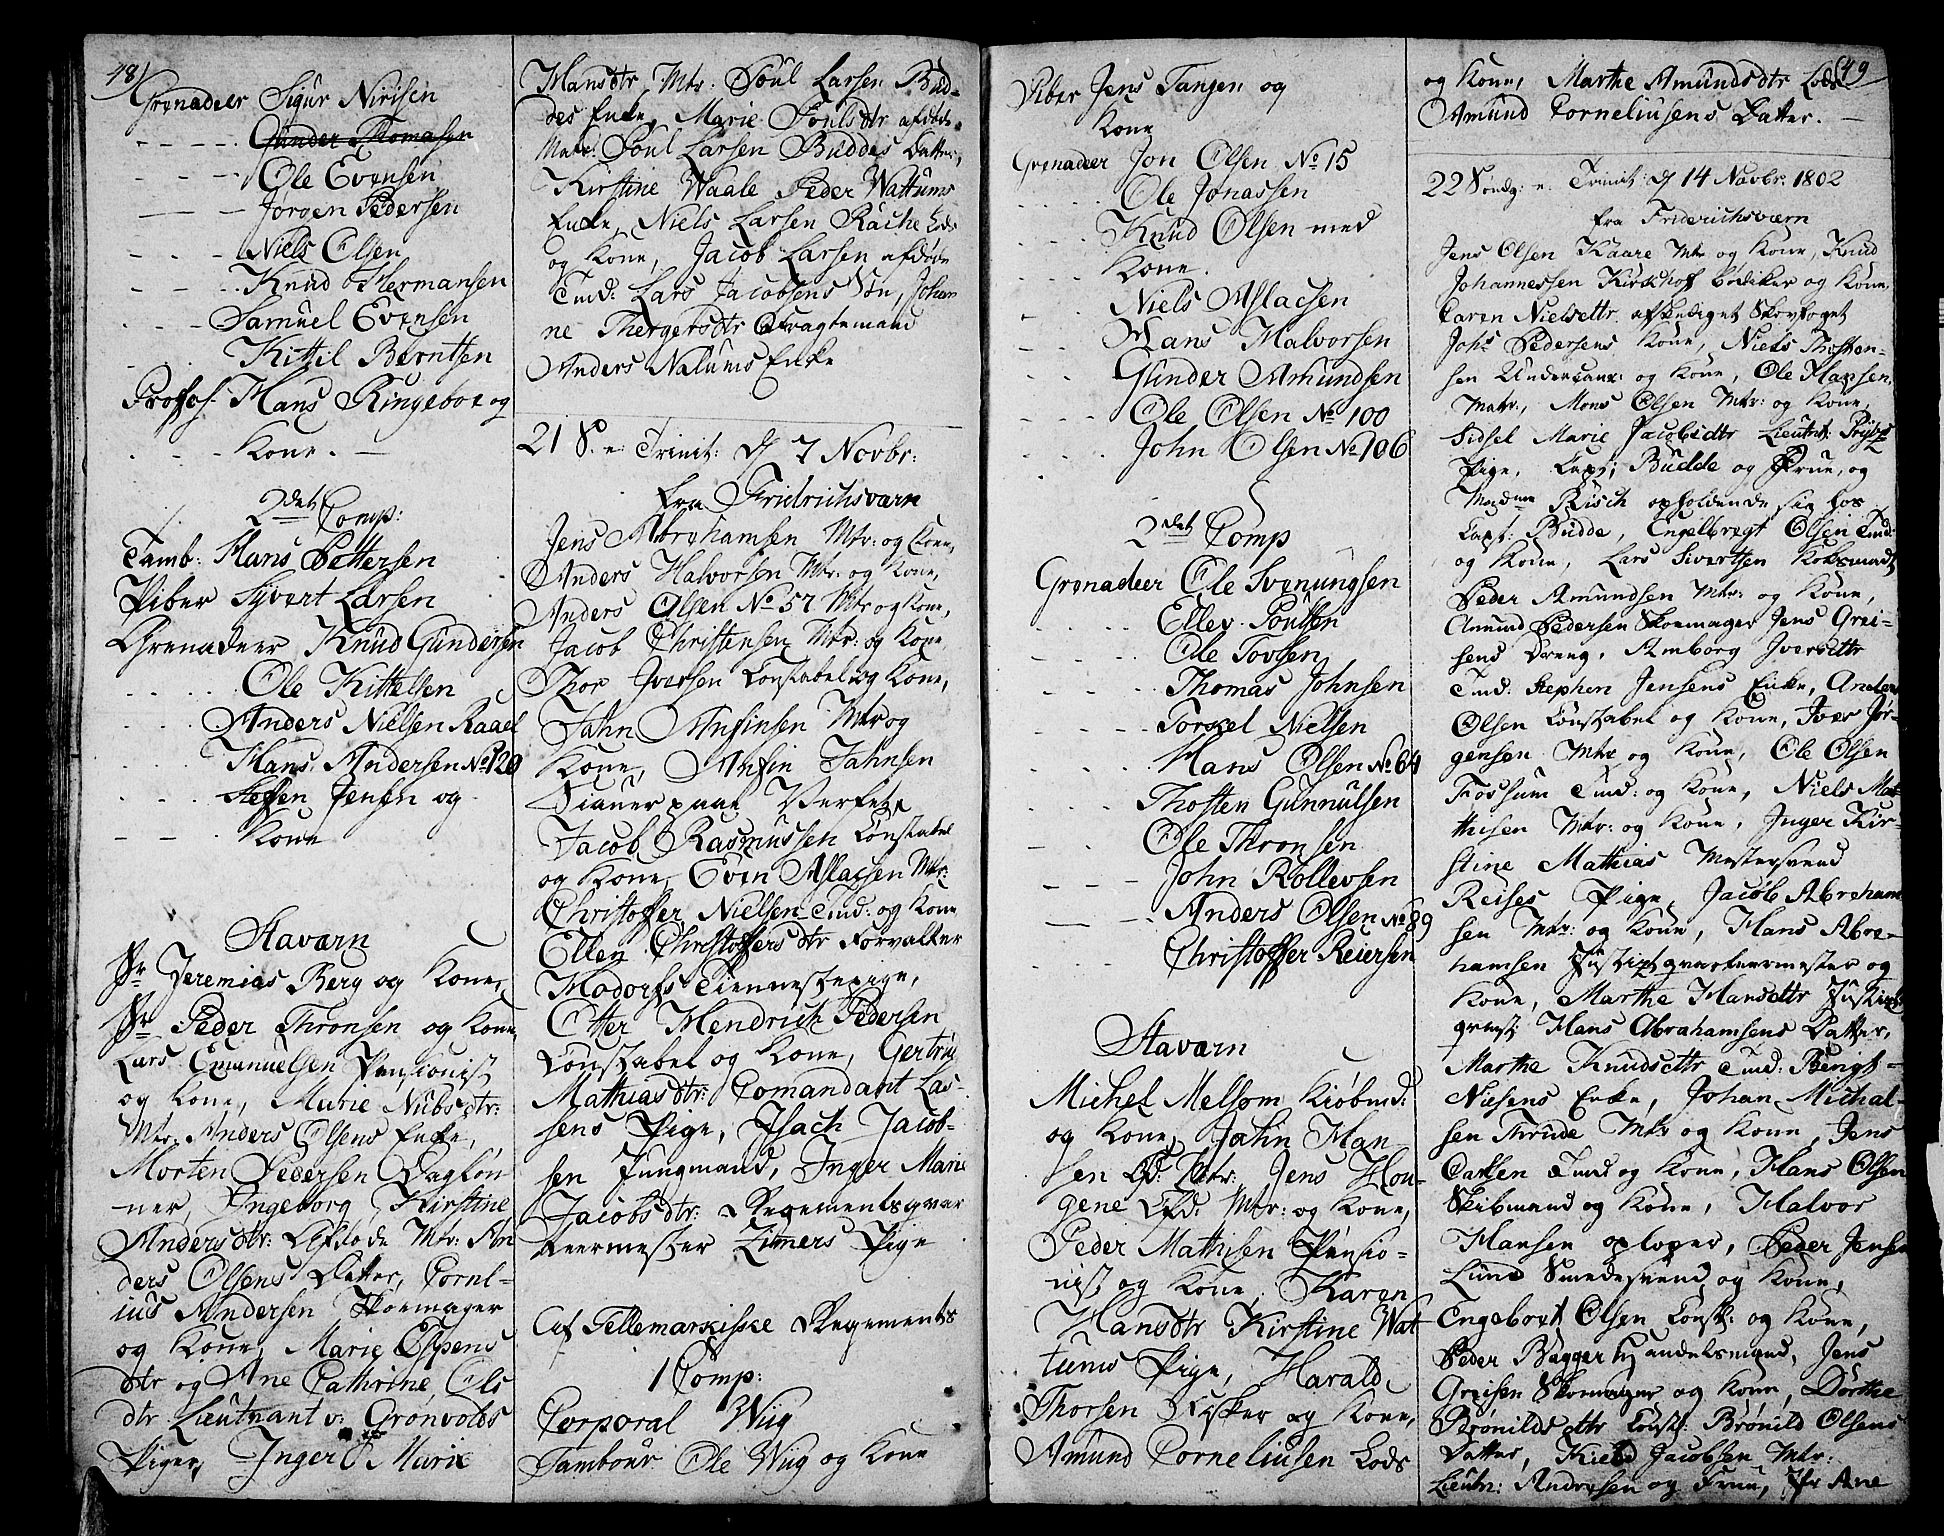 48)
Grenadeer Sigur Nirisen
- - - - Gunder Thomasen
- - - Ole Evensen
- - - Jørgen Pedersen
- - - Niels Olsen
- - - Knud Hermansen
- - - Samuel Evensen
- - - Kittil Berntsen
Profos: Hans Ringeboe og
- - - Kone. -
2det Comp:
Tamb: Hans Pettersen
Piber Syvert Larsen
Grenadeer Knud Gundersen
- - - Ole Kittelsen
- - - Anders Nielsen Raael
- - - Hans Andersen No 120
- - - Steffen Jensen og
- - - Kone
Staværn
Sr Jeremias Berg og Kone,
Sr Peder Thronsen og Kone
Lars Emanuelsen Pensionist
og Kone, Marie Nubsdtr:
Mtr: Anders Olsens Enke,
Morten Pedersen Dagløn-
ner, Ingeborg Kirstine
Andersdtr: Afdøde Mtr: An
ders Olsens Datter, Cornl-
ius Andersen Skoemager
og Kone, Marie Espens
dtr og Ane Cathrine Ols
dtr Lieutnant v: Grønvolds
Piger, Inger Marie
Hansdtr Mtr: Poul Larsen Bud-
des Enke, Marie Poulsdtr afdøde
Matr: Poul Larsen Buddes Datter,
Kirstine Waale Peder Wattums
Enke, Niels Larsen Rache Lods
og Kone, Jacob Larsen afdøde
Tmd: Lars Jacobsens Søn, Johan
ne Thergersdtr Fragtemand
Anders Nalums Enke
21 S. e. Trinit: d 7 Novbr:
fra Fridrichsværn
Jens Abrahamsen Mtr: og Kone,
Anders Halvorsen Mtr: og Kone,
Anders Olsen No 57 Mtr og Kone,
Jacob Christensen Mtr: og Kone
Thor Iversen Constabel og Kone,
Jahn Anfinsen Mtr og
Kone, Anfin Jahnsen
paa Verfet
Jacob Rasmussen Constabel
og Kone, Even Aslacsen Mtr:
Christoffer Nielsen Tmd: og Kone
Ellen Christoffersdtr Forvalter
Modorfs Tiennestepige,
Otter Hendrich Pedersen
Constabel og Kone, Gertrue
Mathiasdtr: Comandant Las-
sens Pige, Isach Jacob-
sen Jungmand, Inger Marie
Jacobsdtr: Regementsqvar
teermester Zitners Pige
Af Tellemarkiske Regements
1 Comp:
Corporal Wiig
Tambour Ole Wiig og Kone
Piber Jens Tangen og
Kone
Grenadeer Jon Olsen No 15
- - - Ole Jonassen
- - - Knud Olsen med
- - - Kone.
- - - Niels Aslacsen
- - - Hans Halvorsen
- - - Gunder Amundsen
- - - Ole Olsen No 100
- - - John Olsen No 106
2det Comp
Grenadeer Ole Svenungsen
- - - Ellev Poulsen
- - - Ole Tovsen
- - - Thomas Johnsen
- - - Torkel Nielsen
- - - Hans Olsen No 64
- - - Thosten Gunnulsen
- - - Ole Thronsen
- - - John Rollevsen
- - - Anders Olsen No 89
- - - Christoffer Reiersen
Staværn
Michel Melsom Kiøbmd:
og Kone, Jahn Han-
sen Afd: Mtr: Jens Hou-
gene Afd: Mtr: og Kone,
Peder Mathisen Pensio-
nist og Kone. Karen
Hansdtr Kirstine Wat
tums Pige, Harald
Thorsen Fisker og Kone,
Amund Corneliusen Lods
(49
og Kone, Marthe Amundsdtr Lods
Amund Corneliusens Datter. -
22 Sondg: e. Trinit: d 14 Novbr: 1802
fra Friderichsværn
Jens Olsen Kaare Mtr og Kone, Knud
Johannessen Kirckhof Bødiker og Kone,
Caren Nielsdtr. afskediget Skovfoget
Johs Pedersens Kone, Niels Thosten-
sen Undercanr: og Kone, Ole Hansen
Matr:, Mons Olsen Mtr: og Kone,
Sidsel Marie Jacobsdtr Lieutnt:
Pige, Capt: Budde og Frue, og
Madme Risch opholdende sig hos
Capt: Budde, Engelbregt Olsen Tmd:
og Kone, Lars Sivertsen Koksmadt
Peder Amundsen Mtr: og Kone,
Amund Pedersen Skoemager Jens Grei-
sens Dreng, Amborg Iversdtr
Tmd: Stephen Jensens Enke, Anders
Olsen Constabel og Kone, Iver Jør-
gensen Mtr og Kone, Ole Olsen
Fossum Tmd: og Kone, Niels Ma-
thisen Mtr: og Kone, Inger Kir-
stine Mathias Mestersvend
Reises Pige, Jacob Abraham
sen Mtr: og Kone, Hans Abra-
hamsen Justitsqvarteermester og
Kone, Marthe Hansdtr Justits
qvmst: Hans Abrahamsens Datter,
Marthe Knudsdtr Tmd: Bengt
Nielsens Enke, Johan Michal-
sen Thrude Mtr og Kone, Jens
Carlsen Tmd og Kone, Hans Olsen
Skibmand og Kone, Halvor
Hansen oploper, Peder Jensen
Lund Smedesvend og Kone,
Engebort Olsen Const: og Kone,
Peder Bagger Handelsmand, Jens
Greisen Skoemager og Kone, Dorthe
Brønildsdtr Const: Brønild Olsens
Datter, Kield Jacobsen Mtr:
Lieutn: Andresen og Frue, Jfr Ane